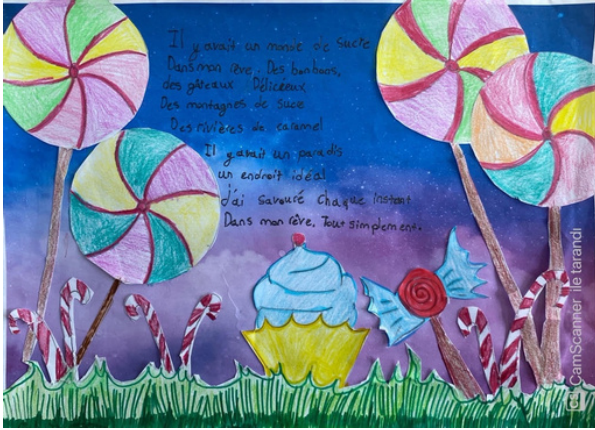 Il y avait un monde de sucre
Dans mon rêve. Des bonbons,
des gâteaux Déliceux,
Des montagnes de suce
Des rivières de caramel
Il y avait un paradis
un endroit idéal
j'ai savouré chaque instant
Dans mon rêve. Tout simplement.
CamScanner ile tarandı